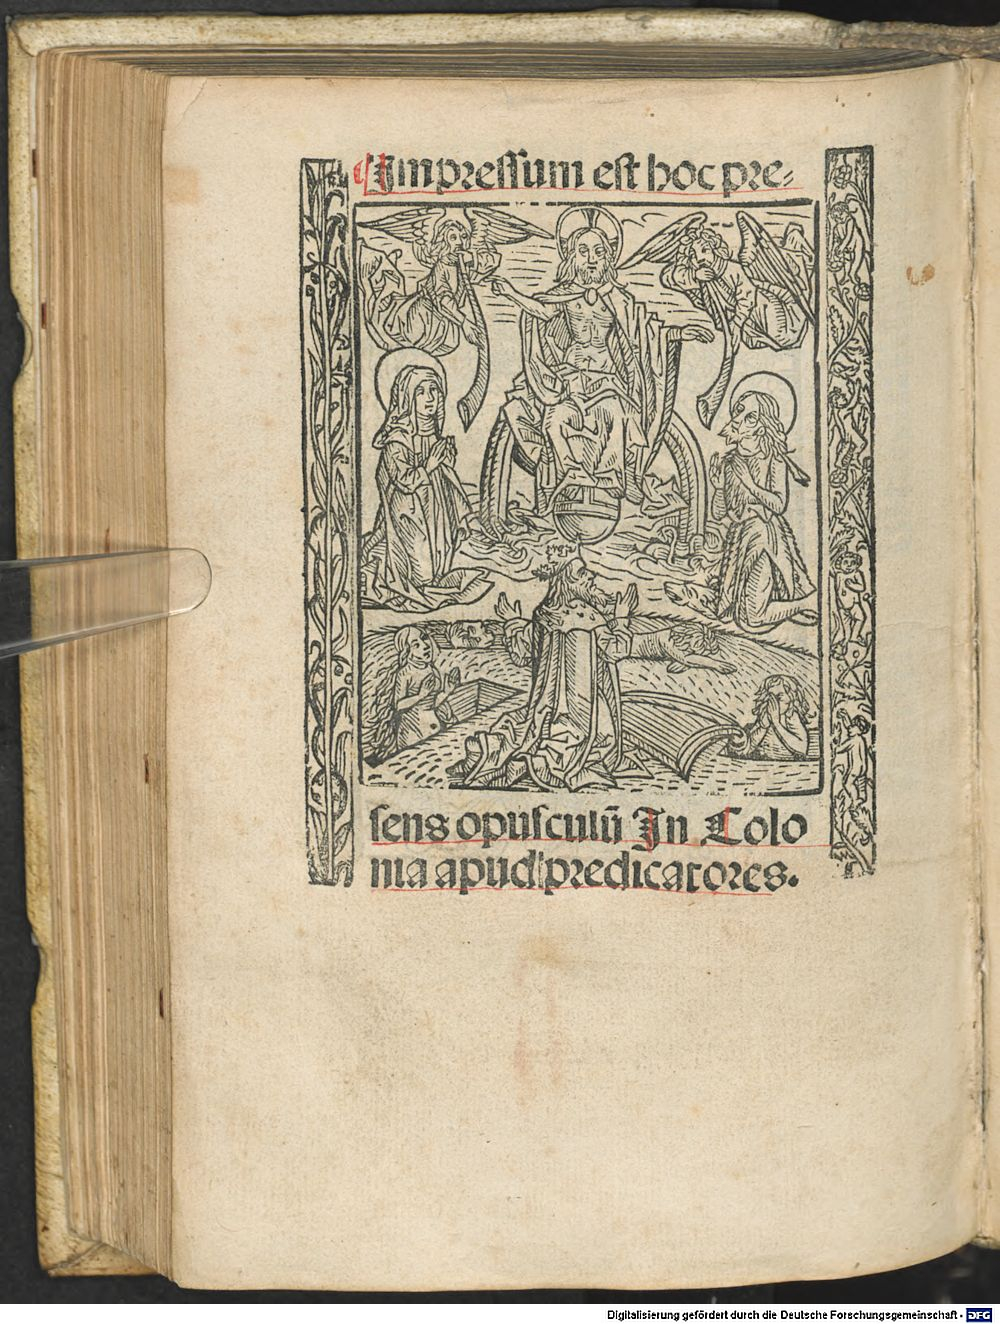 ¶Impressum est hoc pre⸗
sens opusculū In Colo
nia apud predicatores.
Digitalisierung gefördert durch die Deutsche Forschungsgemeinschaft - DFG